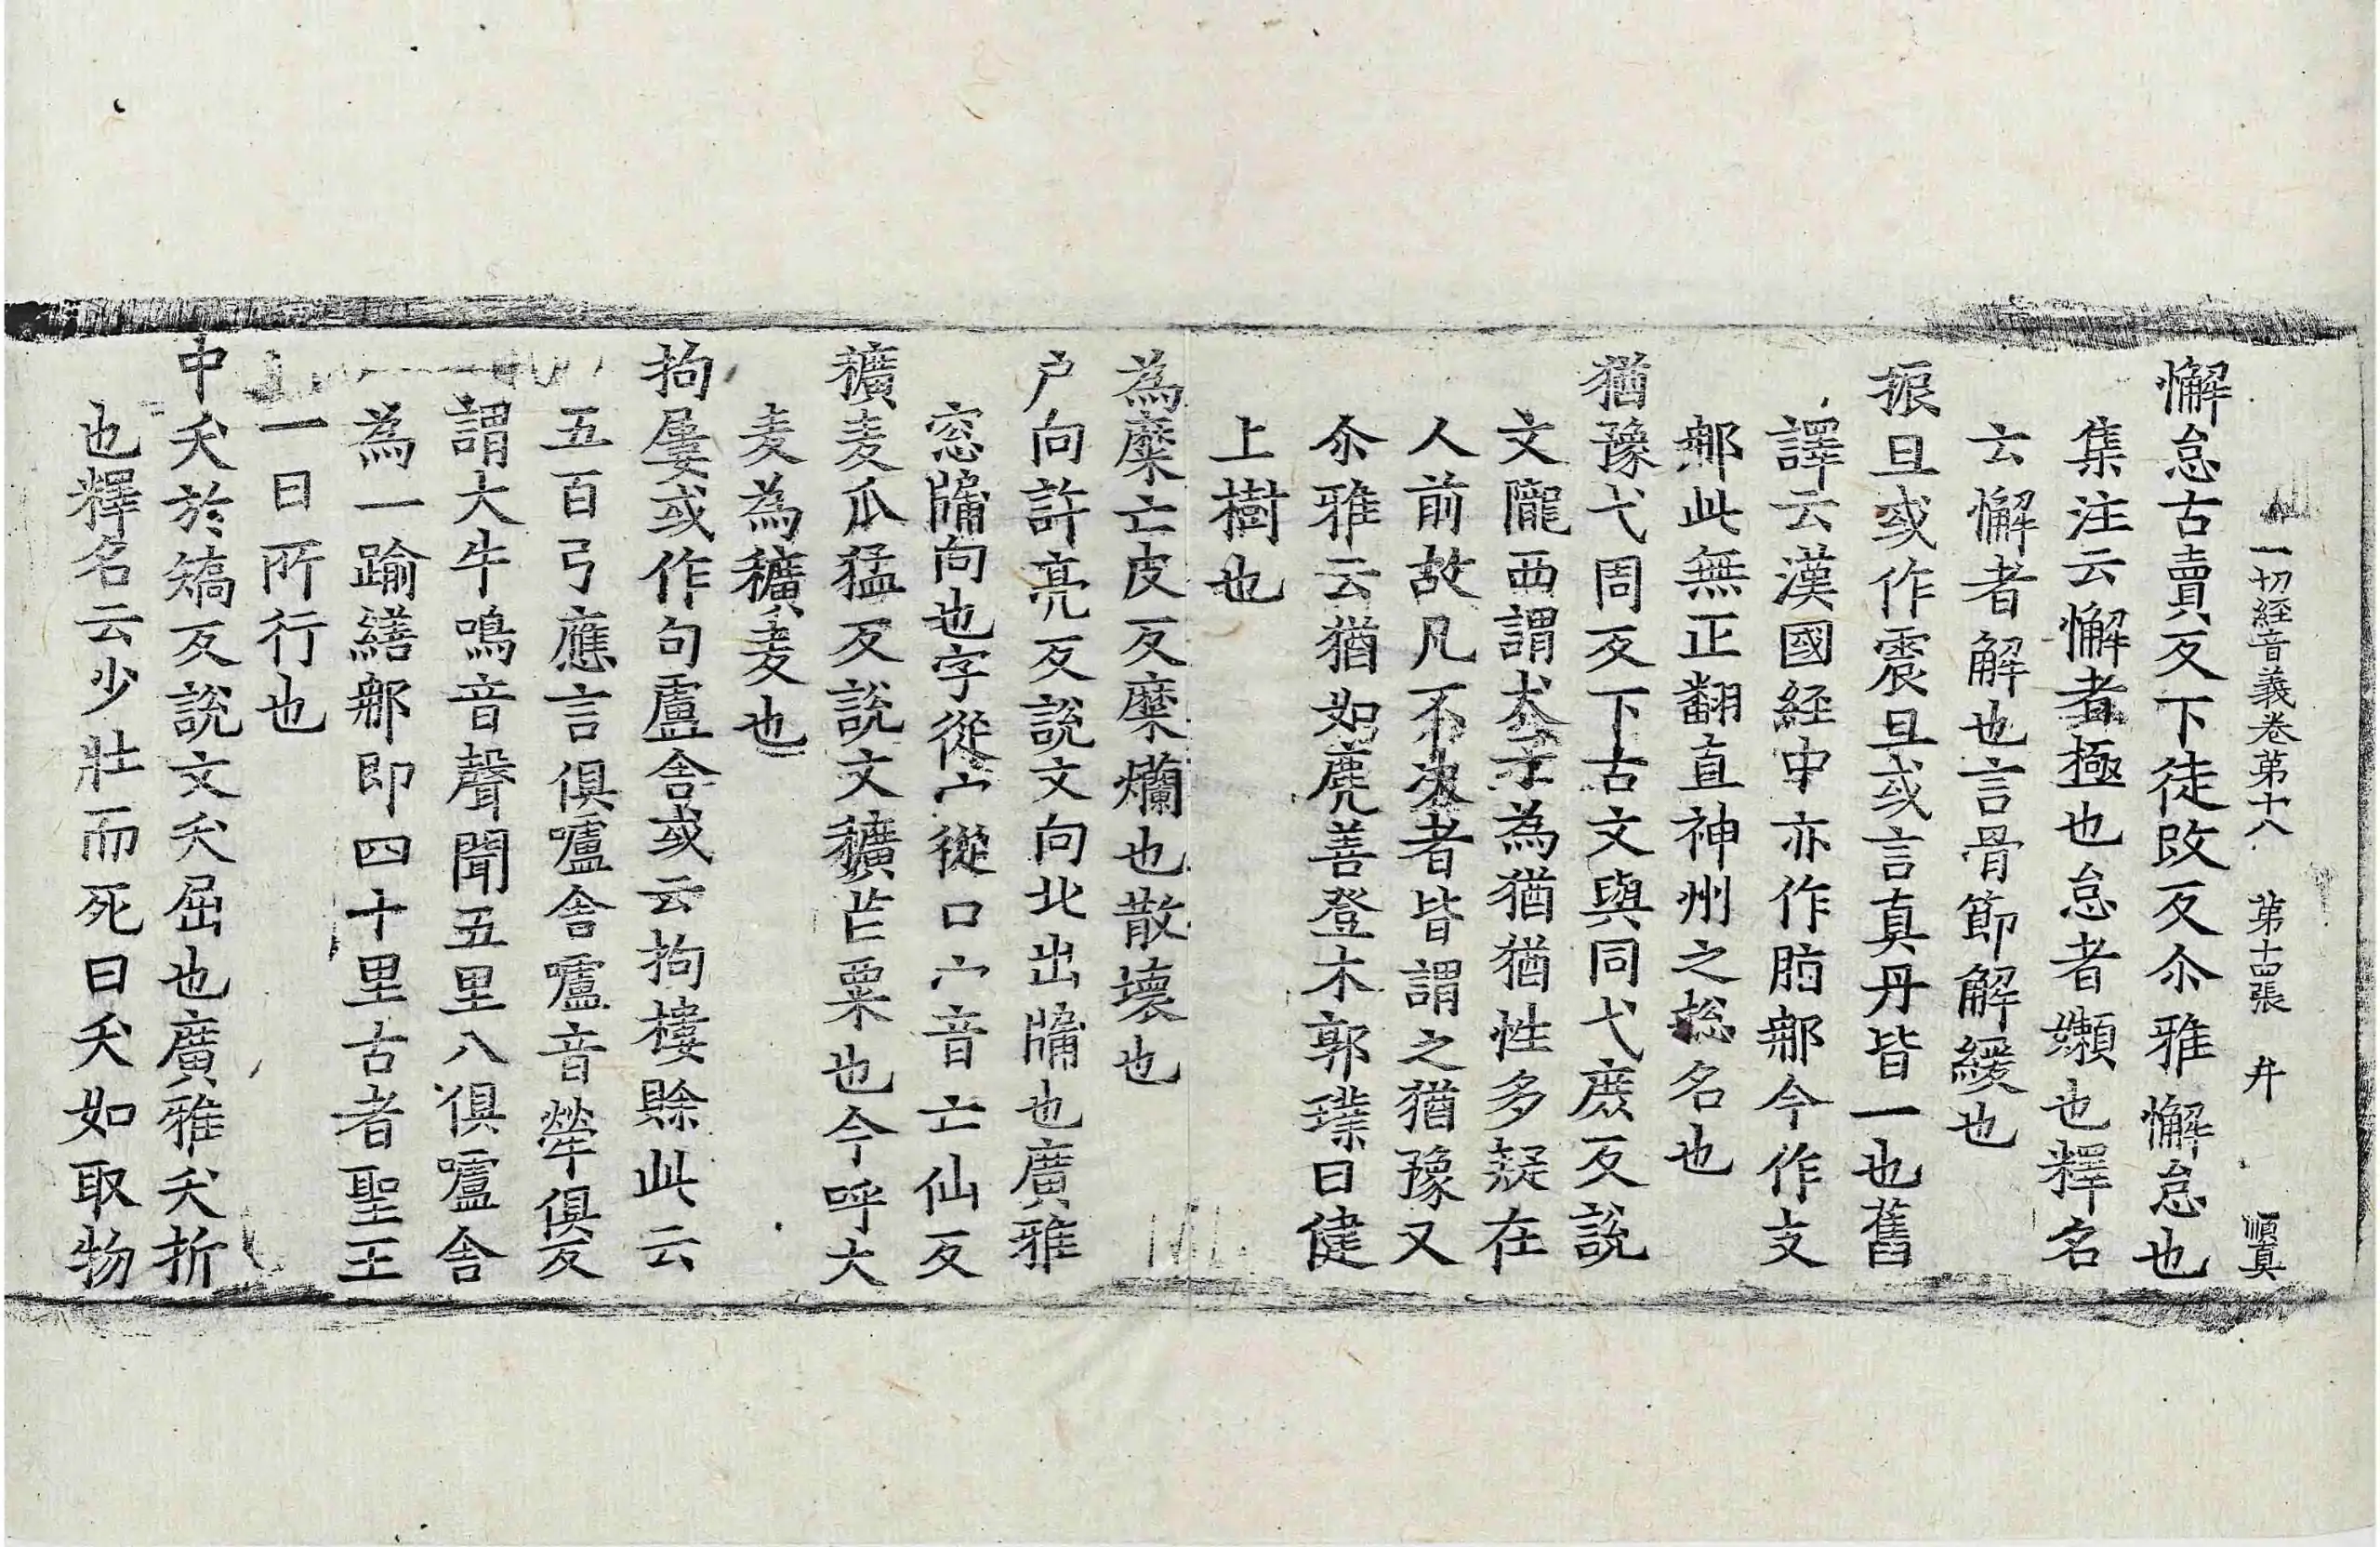 一切経音義卷第十八 第十四張 弁 順真
懈怠古賣反下徒改反尒雅懈怠也
集注云懈者極也怠者嬾也釋名
云懈者解也言骨節解緩也
振旦或作震旦或言真丹皆一也舊
譯云漢國経中亦作脂那今作支
那此無正翻直神州之総名也
猶豫弋周反下古文與同弋庶反說
文隴西謂犬子為猶猶性多疑在
人前故凡不决者皆謂之猶豫又
尒雅云猶如麂善登木郭璞曰健
上樹也
為糜亡皮反糜爛也散壞也
户向許亮反說文向北出牖也廣雅
窓牖向也字從宀從口宀音亡仙反
穬麦瓜猛反說文穬芒粟也今呼大
麦為穬麦也
拘屢或作句盧舎或云拘樓賒此云
五百弓應言俱嚧舎嚧音犖俱反
謂大牛鳴音聲聞五里八俱嚧舎
為一踰繕那即四十里古者聖王
一日所行也
中夭於矯反說文夭屈也廣雅夭折
也釋名云少壯而死曰夭如取物